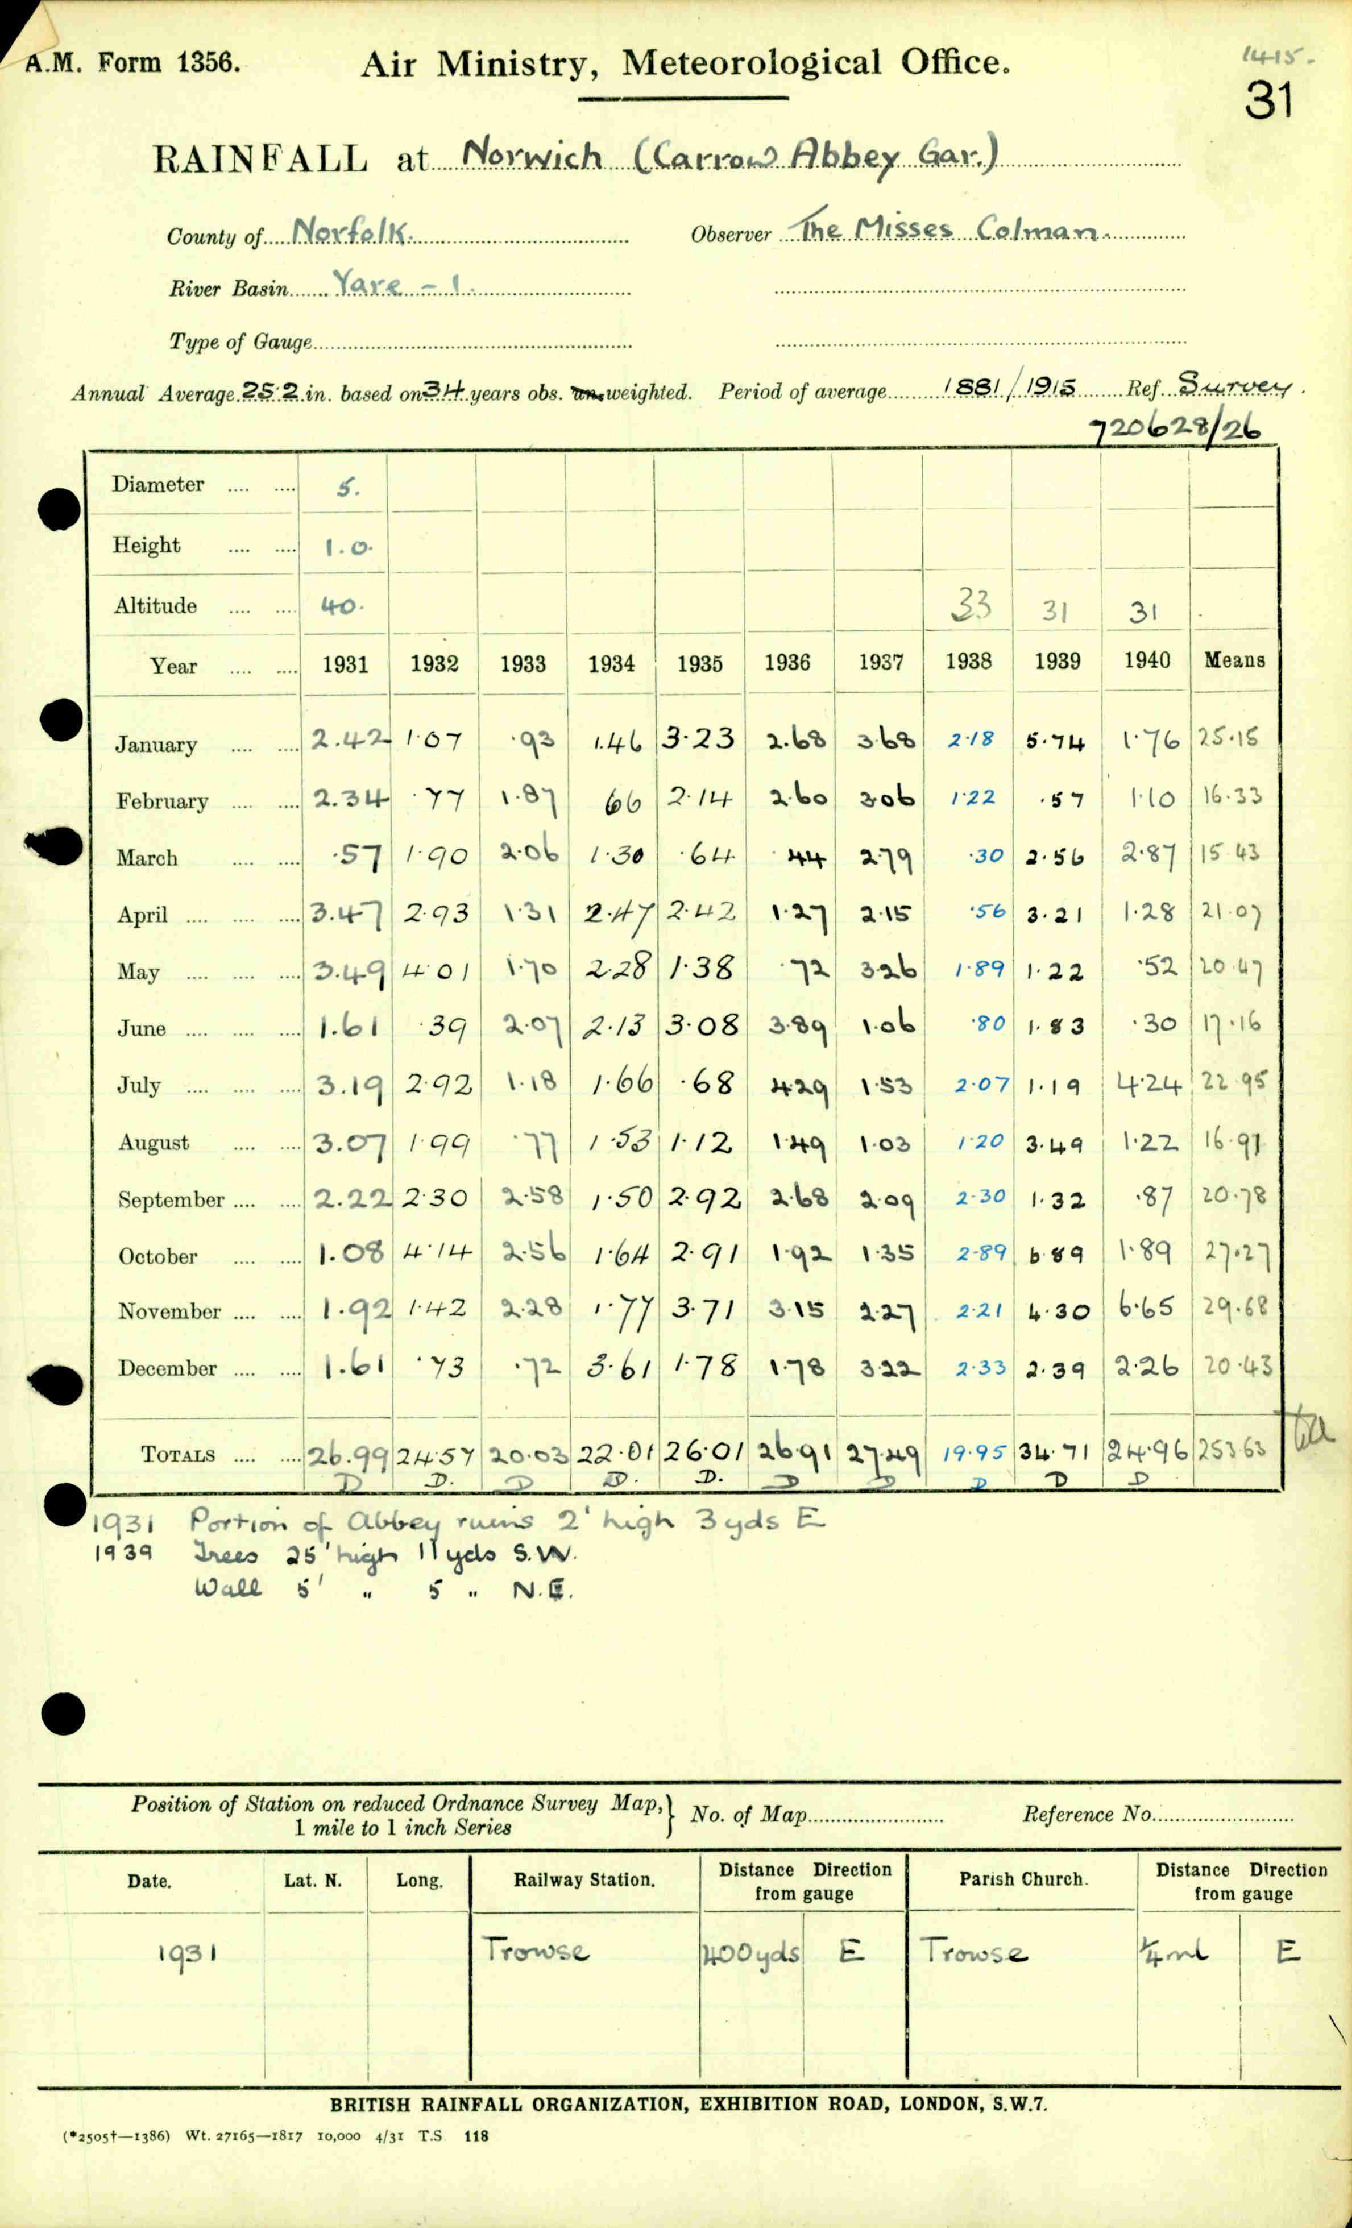 A.M. Form 1356. Air Ministry, Meteorological Office. 1415.
31
RAINFALL at Norwich (Carrow Abbey Gar.)
County of Norfolk. Observer The Misses Colman.
River Basin Yare - 1.
Type of Gauge
Annual Average 25.2 in. based on 34 years obs. un-weighted. Period of average 1881/1915 Ref. Survey.
720628/26
Diameter 5.
Height 1.0.
Altitude 40. 33 31 31
Year 1931 1932 1933 1934 1935 1936 1937 1938 1939 1940 Means
January 2.42 1.07 .93 1.46 3.23 2.68 3.68 2.18 5.74 1.76 25.15
February 2.34 .77 1.87 66 2.14 2.60 3.06 1.22 .57 1.10 16.33
March .57 1.90 2.06 1.30 .64 .44 2.79 .30 2.56 2.87 15.43
April 3.47 2.93 1.31 2.47 2.42 1.27 2.15 .56 3.21 1.28 21.07
May 3.49 4.01 1.70 2.28 1.38 .72 3.26 1.89 1.22 .52 20.47
June 1.61 .39 2.07 2.13 3.08 3.89 1.06 .80 1.83 .30 17.16
July 3.19 2.92 1.18 1.66 .68 4.29 1.53 2.07 1.19 4.24 22.95
August 3.07 1.99 .77 1.53 1.12 1.49 1.03 1.20 3.49 1.22 16.91
September 2.22 2.30 2.58 1.50 2.92 2.68 2.09 2.30 1.32 .87 20.78
October 1.08 4.14 2.56 1.64 2.91 1.92 1.35 2.89 6.89 1.89 27.27
November 1.92 1.42 2.28 1.77 3.71 3.15 2.27 2.21 4.30 6.65 29.68
December 1.61 .73 .72 3.61 1.78 1.78 3.22 2.33 2.39 2.26 20.43
TOTALS 26.99 24.57 20.03 22.01 26.01 26.91 27.49 19.95 34.71 24.96 253.63
D D. D D. D. D D D D D
1931 Portion of Abbey ruins 2' high 3 yds E
1939 Trees 25' high 11 yds S.W.
Wall 5' " 5 " N.E.
Position of Station on reduced Ordnance Survey Map, } No. of Map Reference No.
1 mile to 1 inch Series
Date. Lat. N. Long. Railway Station. Distance Direction from gauge Parish Church. Distance Direction from gauge
1931 Trowse 400yds E Trowse ¼ ml E
BRITISH RAINFALL ORGANIZATION, EXHIBITION ROAD, LONDON, S.W.7.
(*2505†—1386) Wt. 27165—1817 10,000 4/31 T.S 118